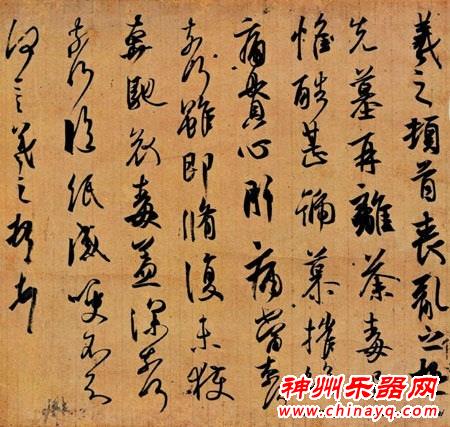 羲之頓首喪亂之極
先墓再離荼毒追
惟酷甚號慕摧絕
痛貫心肝痛當奈何
奈何雖即脩復未獲
奔馳哀毒益深奈何
奈何臨紙感哽不知
何言羲之頓首
神州乐器网
www.chinayq.com